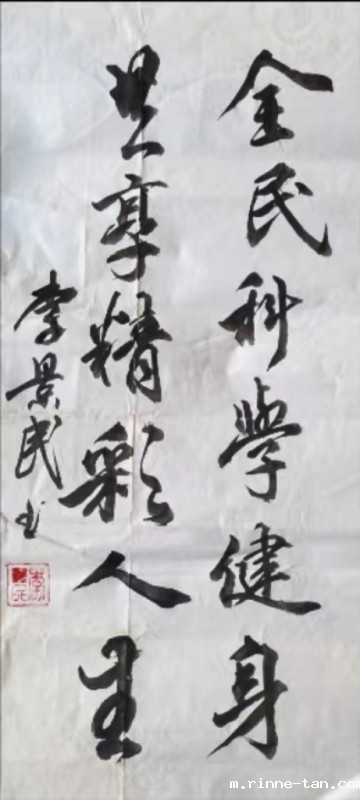 全民科學健身
共享精彩人生
李景民书
m.rinne-tan.com